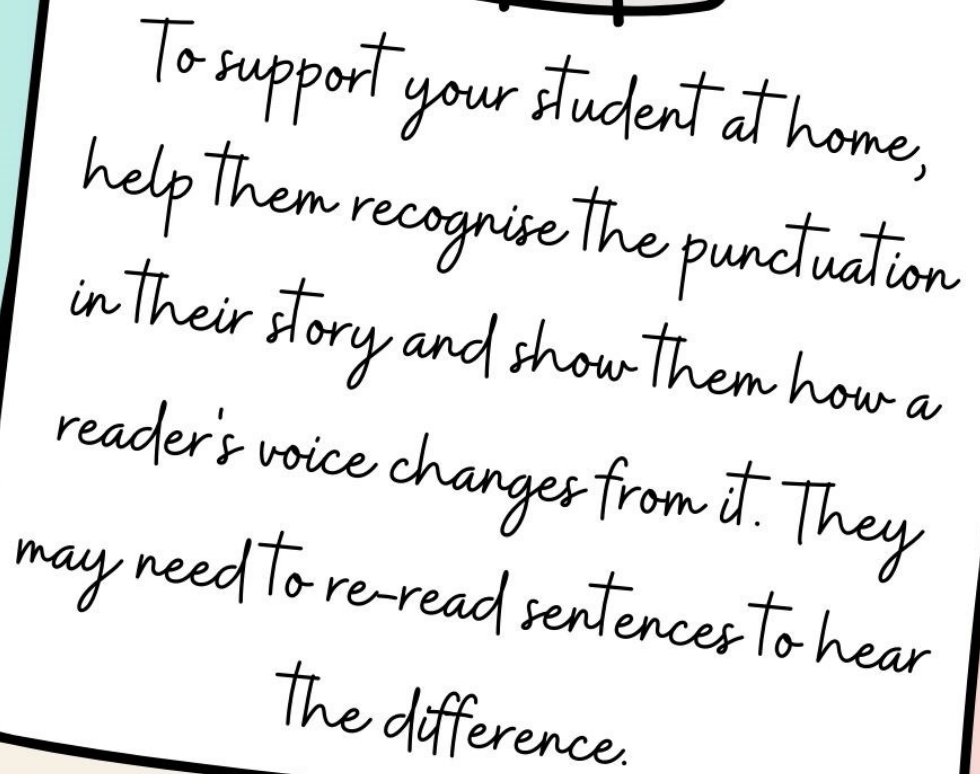 To support your student at home,
help them recognise the punctuation
in their story and show them how a
reader's voice changes from it. They
may need to re-read sentences to hear
the difference.